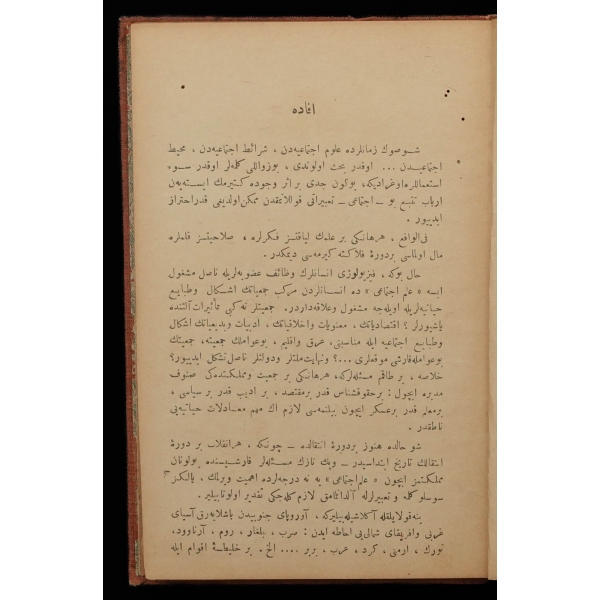 افاده
شو صوك زمانلرده علوم اجتماعيه‌دن ، شرائط اجتماعيه‌دن ، محيط
اجتماعيدن ... اوقدر بحث اولوندی ، بو زواللی كله‌لر اوقدر سوء
استعماللره اوغراديكه، بوكون جدی بر اثر وجوده كتيرمك ايسته‌ين
ارباب تتبع بو ـ اجتماعی ـ تعبيراتی قوللانمقدن ممكن اولديغی قدر احتراز
ايدييور .
فی‌الواقع ، هرهانكی بر علمك لياقتسز فكرلره ، صلاحيتسز قلملره
مال اولماسی بر دورۀ فلاكته كيرمه‌سی ديمكدر .
حال بوكه ، فيزيولوژی انسانلرك وظائف عضويه‌لريله ناصل مشغول
ايسه « علم اجتماعی » ده انسانلردن مركب جمعياتك اشكال وطبايع
حياتيه‌لريله اويله‌جه مشغول وعلاقه‌داردر. جمعيتلر نه كبی تأثيرات آلتنده
ياشيورلر ؟ اقتصادياتك ، معنويات واخلاقياتك ، ادبيات وبديعياتك اشكال
وطبايع اجتماعيه ايله مناسبتی، عرق واقليم ، بو عواملك جمعيته، جمعيتك
بو عوامله قارشی موقعلری ...؟ ونهايت ملتلر ودولتلر ناصل تشكل ايدييور؟
خلاصه ، بر طاقم مسئله‌لركه، هرهانكی بر جمعيت ومملكتده‌كی صنوف
مدبره ايچون : بر حقوقشناس قدر بر مقتصد ، بر اديب قدر بر سياسی ،
بر معلم قدر بر عسكر ايچون بيلنمه‌سی لازم اك مهم معادلات حياتيه‌يی
ناطقدر .
شو حالده هنوز بر دورۀ انتقالده ـ چونكه ، هر انقلاب بر دورۀ
انتقالك تاريخ ابتداسيدر ـ وپك نازك مسئله‌لر قارشيسنده بولونان
مملكتمز ايچون « علم اجتماعی » يه نه درجه‌لرده اهميت ويرلمك ، يالكز
سوسلو كله و تعبيرلرله آلدانمامق لازم كله‌جكی تقدير اولونابيلير .
ينه قولايلقله آكلاشيله‌بيليركه، آوروپای جنوبيدن باشلايه‌رق آسيای
غربی وافريقای شمالی‌يی احاطه ايدن : صرب ، بلغار ، روم ، آرناوود،
تورك ، ارمنی ، كرد ، عرب ، بربر .... الخ . بر خليطۀ اقوام ايله